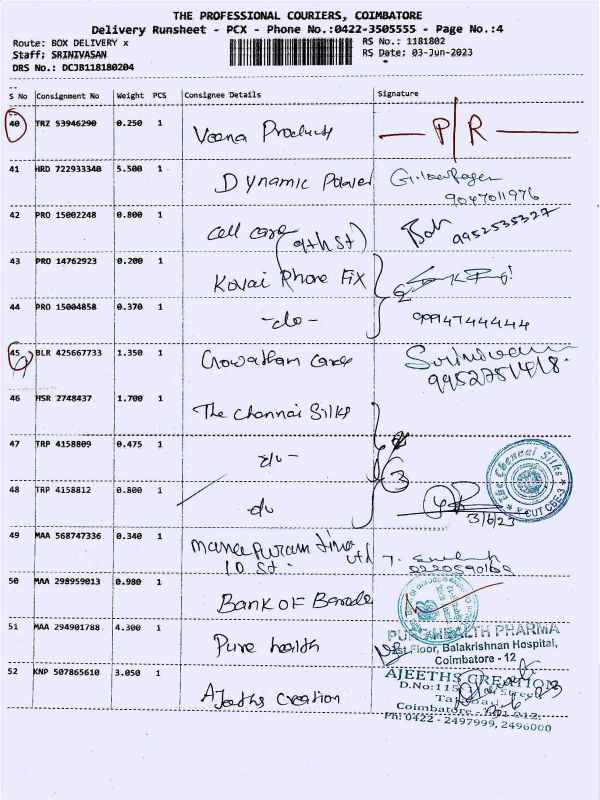 THE PROFESSIONAL COURIERS, COIMBATORE
Delivery Runsheet - PCX - Phone No.:0422-3505555 - Page No.:4
Route: BOX DELIVERY x
RS No.: 1181802
Staff: SRINIVASAN
RS Date: 03-Jun-2023
DRS No.: DCJB118180204
S No Consignment No Weight PCS Consignee Details Signature
40 TRZ 53946290 0.250 1 Veena Products P/R
41 HRD 722933340 5.500 1 Dynamic Power
9047011976
42 PRO 15002248 0.800 1 Cell care 9952535327
(9th St)
43 PRO 14762923 0.200 1 Kovai Phone Fix
44 PRO 15004858 0.370 1 -do- 9994744444
45 BLR 425667733 1.350 1
46 HSR 2748437 1.700 1 The Chennai Silks
47 TRP 4158809 0.475 1 3
The Chennai Silks
CUT CBE-3
48 TRP 4158812 0.800 1 do
3/6/23
49 MAA 568747336 0.340 1
10 St.
50 MAA 298959013 0.980 1 Bank of Baroda
51 MAA 294901788 4.300 1 Pure health
PURE HEALTH PHARMA
1st Floor, Balakrishnan Hospital,
Coimbatore - 12
52 KNP 507865610 3.050 1 Ajeeths Creation
AJEETHS CREATION
Street
Coimbatore - 641 012.
Ph: 0422 - 2497999, 2496000